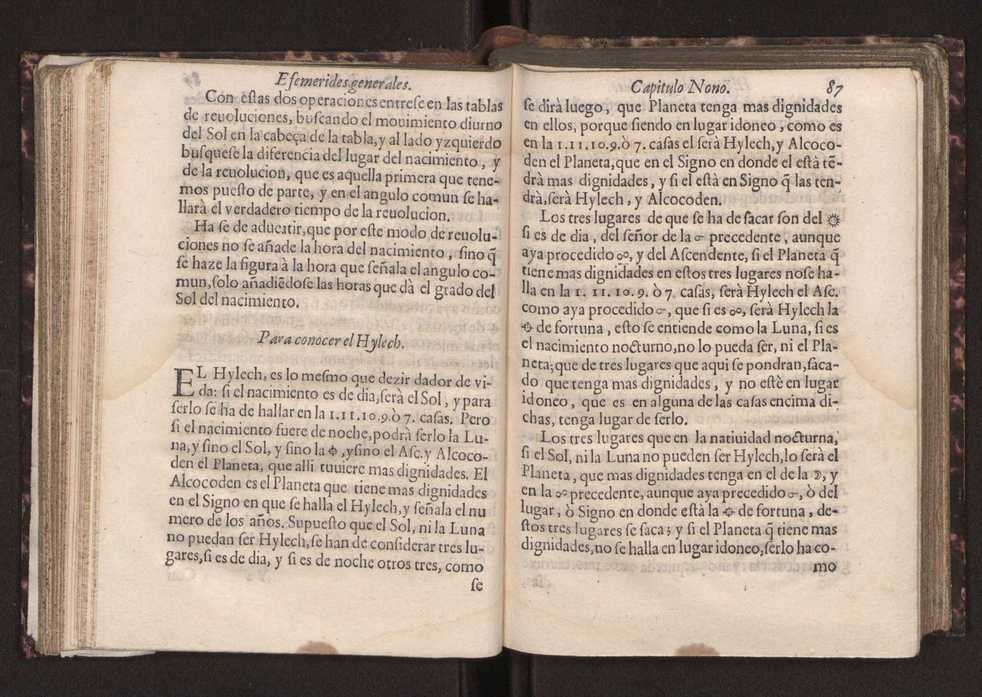 Efemerides generales.
Con estas dos operaciones entrese en las tablas
de reuoluciones, buscando el mouimiento diurno
del Sol en la cabeça de la tabla, y al lado yzquierdo
busquese la diferencia del lugar del nacimiento, y
de la reuolucion, que es aquella primera que tene-
mos puesto de parte, y en el angulo comun se ha-
llarà el verdadero tiempo de la reuolucion.
Ha se de aducatir, que por este modo de reuolu-
ciones no se añade la hora del nacimiento, sino q̃
se haze la figura à la hora que señala el angulo co-
mun, solo añadiẽdose las horas que dà el grado del
Sol del nacimiento.
Para conocer el Hylech.
EL Hylech, es lo mesmo que dezir dador de vi-
da: si el nacimiento es de dia, serà el Sol, y para
serlo se ha de hallar en la 1. 11. 10. 9. ò 7. casas. Pero
si el nacimiento fuere de noche, podrà serlo la Lu-
na, y sino el Sol, y sino la ⊕, y sino el Asc. y Alcoco-
den el Planeta, que alli tuuiere mas dignidades. El
Alcocoden es el Planeta que tiene mas dignidades
en el Signo en que se halla el Hylech, y señala el nu
mero de los años. Supuesto que el Sol, ni la Luna
no puedan ser Hylech, se han de considerar tres lu-
gares, si es de dia, y si es de noche otros tres, como
se
Capitulo Nono. 87
se dirà luego, que Planeta tenga mas dignidades
en ellos, porque siendo en lugar idoneo, como es
en la 1. 11. 10. 9. ò 7. casas el serà Hylech, y Alcoco-
den el Planeta, que en el Signo en donde el està tẽ-
drà mas dignidades, y si el està en Signo q̃ las ten-
drà, serà Hylech, y Alcocoden.
Los tres lugares de que se ha de sacar son del ☼
si es de dia, del señor de la ☌ precedente, aunque
aya procedido ☍, y del Ascendente, si el Planeta q̃
tiene mas dignidades en estos tres lugares no se ha-
lla en la 1. 11. 10. 9. ò 7. casas, serà Hylech el Asc.
como aya procedido ☌, que si es ☍, serà Hylech la
⊕ de fortuna, esto se entiende como la Luna, si es
el nacimiento nocturno, no lo pueda ser, ni el Pla-
neta; que de tres lugares que aqui se pondran, saca-
do que tenga mas dignidades, y no estè en lugar
idoneo, que es en alguna de las casas encima di-
chas, tenga lugar de serlo.
Los tres lugares que en la natiuidad nocturna,
si el Sol, ni la Luna no pueden ser Hylech, lo serà el
Planeta, que mas dignidades tenga en el de la ☽, y
en la ☍ precedente, aunque aya precedido ☌, ò del
lugar, ò Signo en donde està la ⊕ de fortuna, de-
stos tres lugares se saca; y si el Planeta q̃ tiene mas
dignidades, no se halla en lugar idoneo, serlo ha co-
mo